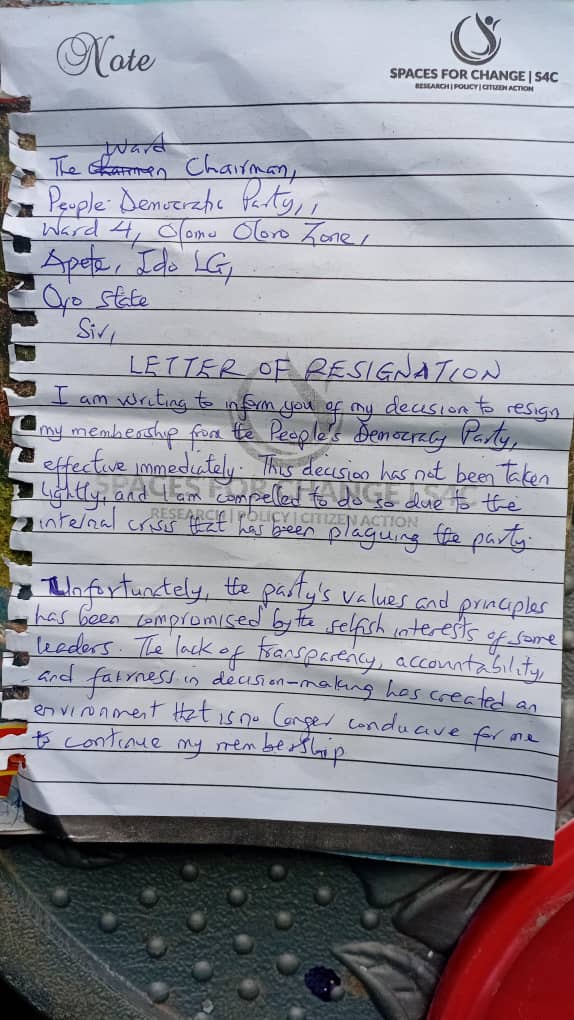 Note
SPACES FOR CHANGE | S4C
RESEARCH | POLICY | CITIZEN ACTION
Ward
The Chairman,
People Democratic Party,,
Ward 4, Olomo Oloro Zone,
Apete, Ido LG,
Oyo State
Sir,
LETTER OF RESIGNATION
I am writing to inform you of my decision to resign
my membership from the People's Democracy Party,
effective immediately. This decision has not been taken
lightly, and I am compelled to do so due to the
internal crisis that has been plaguing the party.
SPACES FOR CHANGE | S4C
RESEARCH | POLICY | CITIZEN ACTION
Unfortunately, the party's values and principles
has been compromised by the selfish interests of some
leaders. The lack of transparency, accountability,
and fairness in decision-making has created an
environment that is no longer conducive for me
to continue my membership